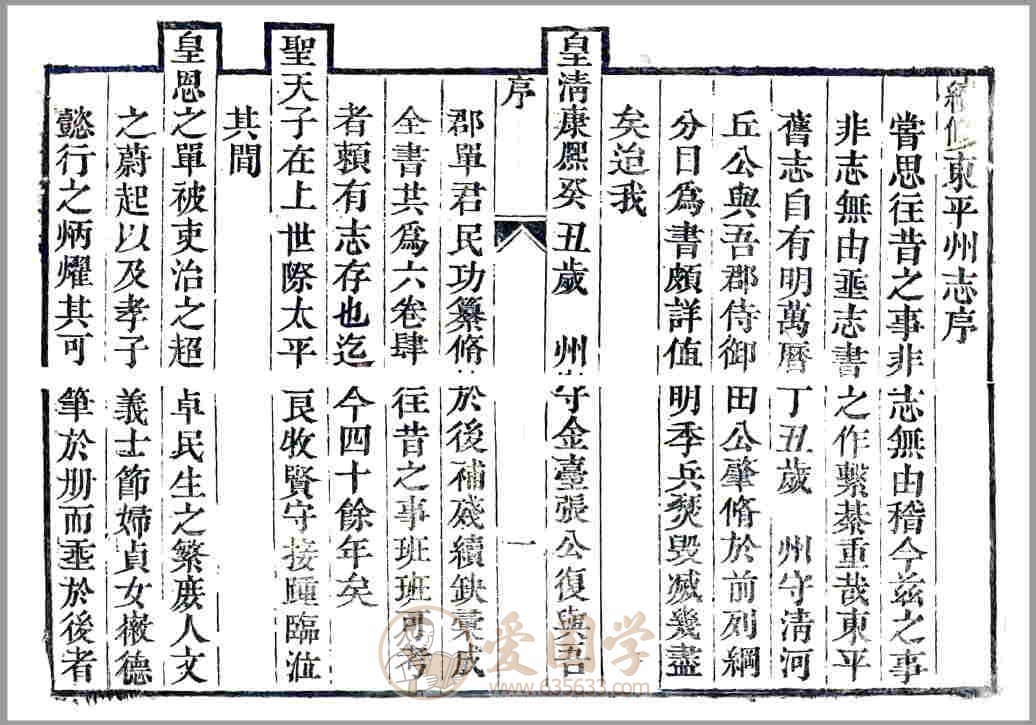 續修東平州志序
嘗思往昔之事非志無由稽今茲之事
非志無由垂志書之作繫綦重哉東平
舊志自有明萬曆丁丑歲 州守清河
丘公與吾郡侍御田公肇脩於前列綱
分目為書頗詳值明季兵燹毀滅幾盡
矣迨我
皇清康熙癸丑歲 州守金臺張公復與吾
序
一
郡單君民功纂脩於後補殘續缺彙成
全書共為六卷肆往昔之事班班可考
者賴有志存也迄今四十餘年矣
聖天子在上世際太平良牧賢守接踵臨涖
其間
皇恩之單被吏治之超卓民生之繁庶人文
之蔚起以及孝子義士節婦貞女嫩德
懿行之炳燿其可筆於册而垂於後者
爱国学
www.635633.com